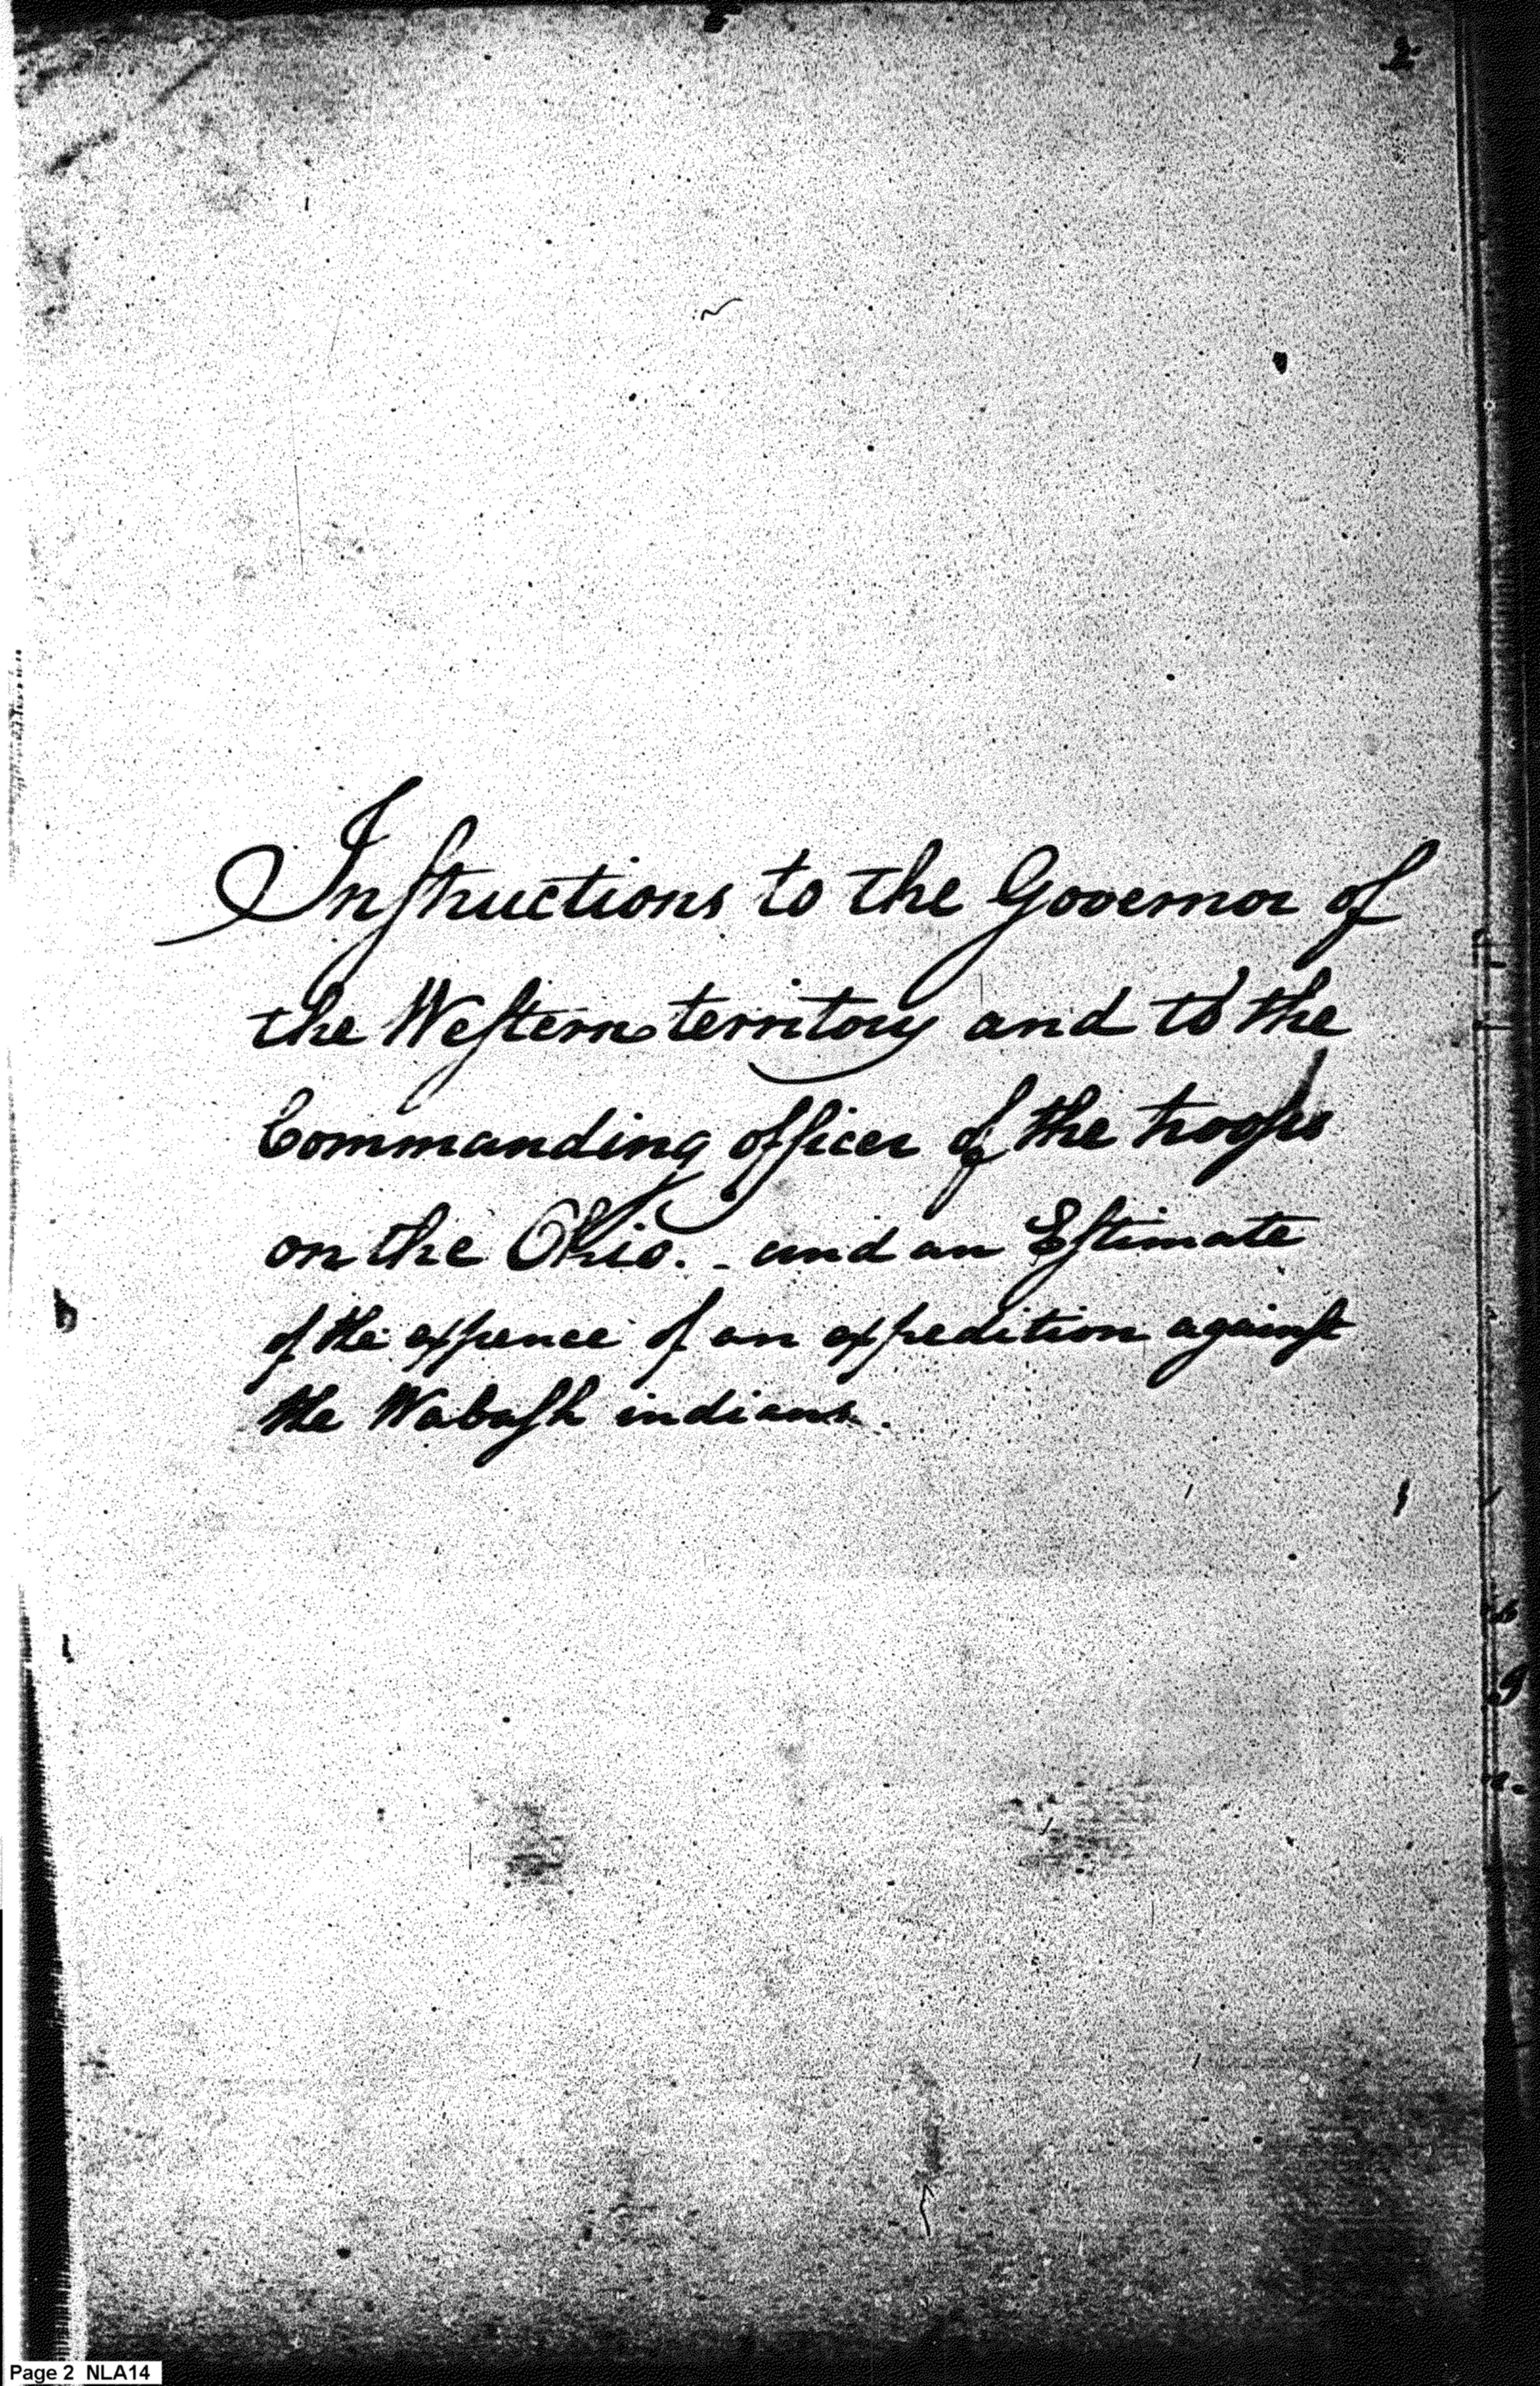 2
Instructions to the Governor of
the Western territory and to the
Commanding officer of the troops
on the Ohio. - and an Estimate
of the expence of an expedition against
the Wabash indians.
Page 2 NLA14